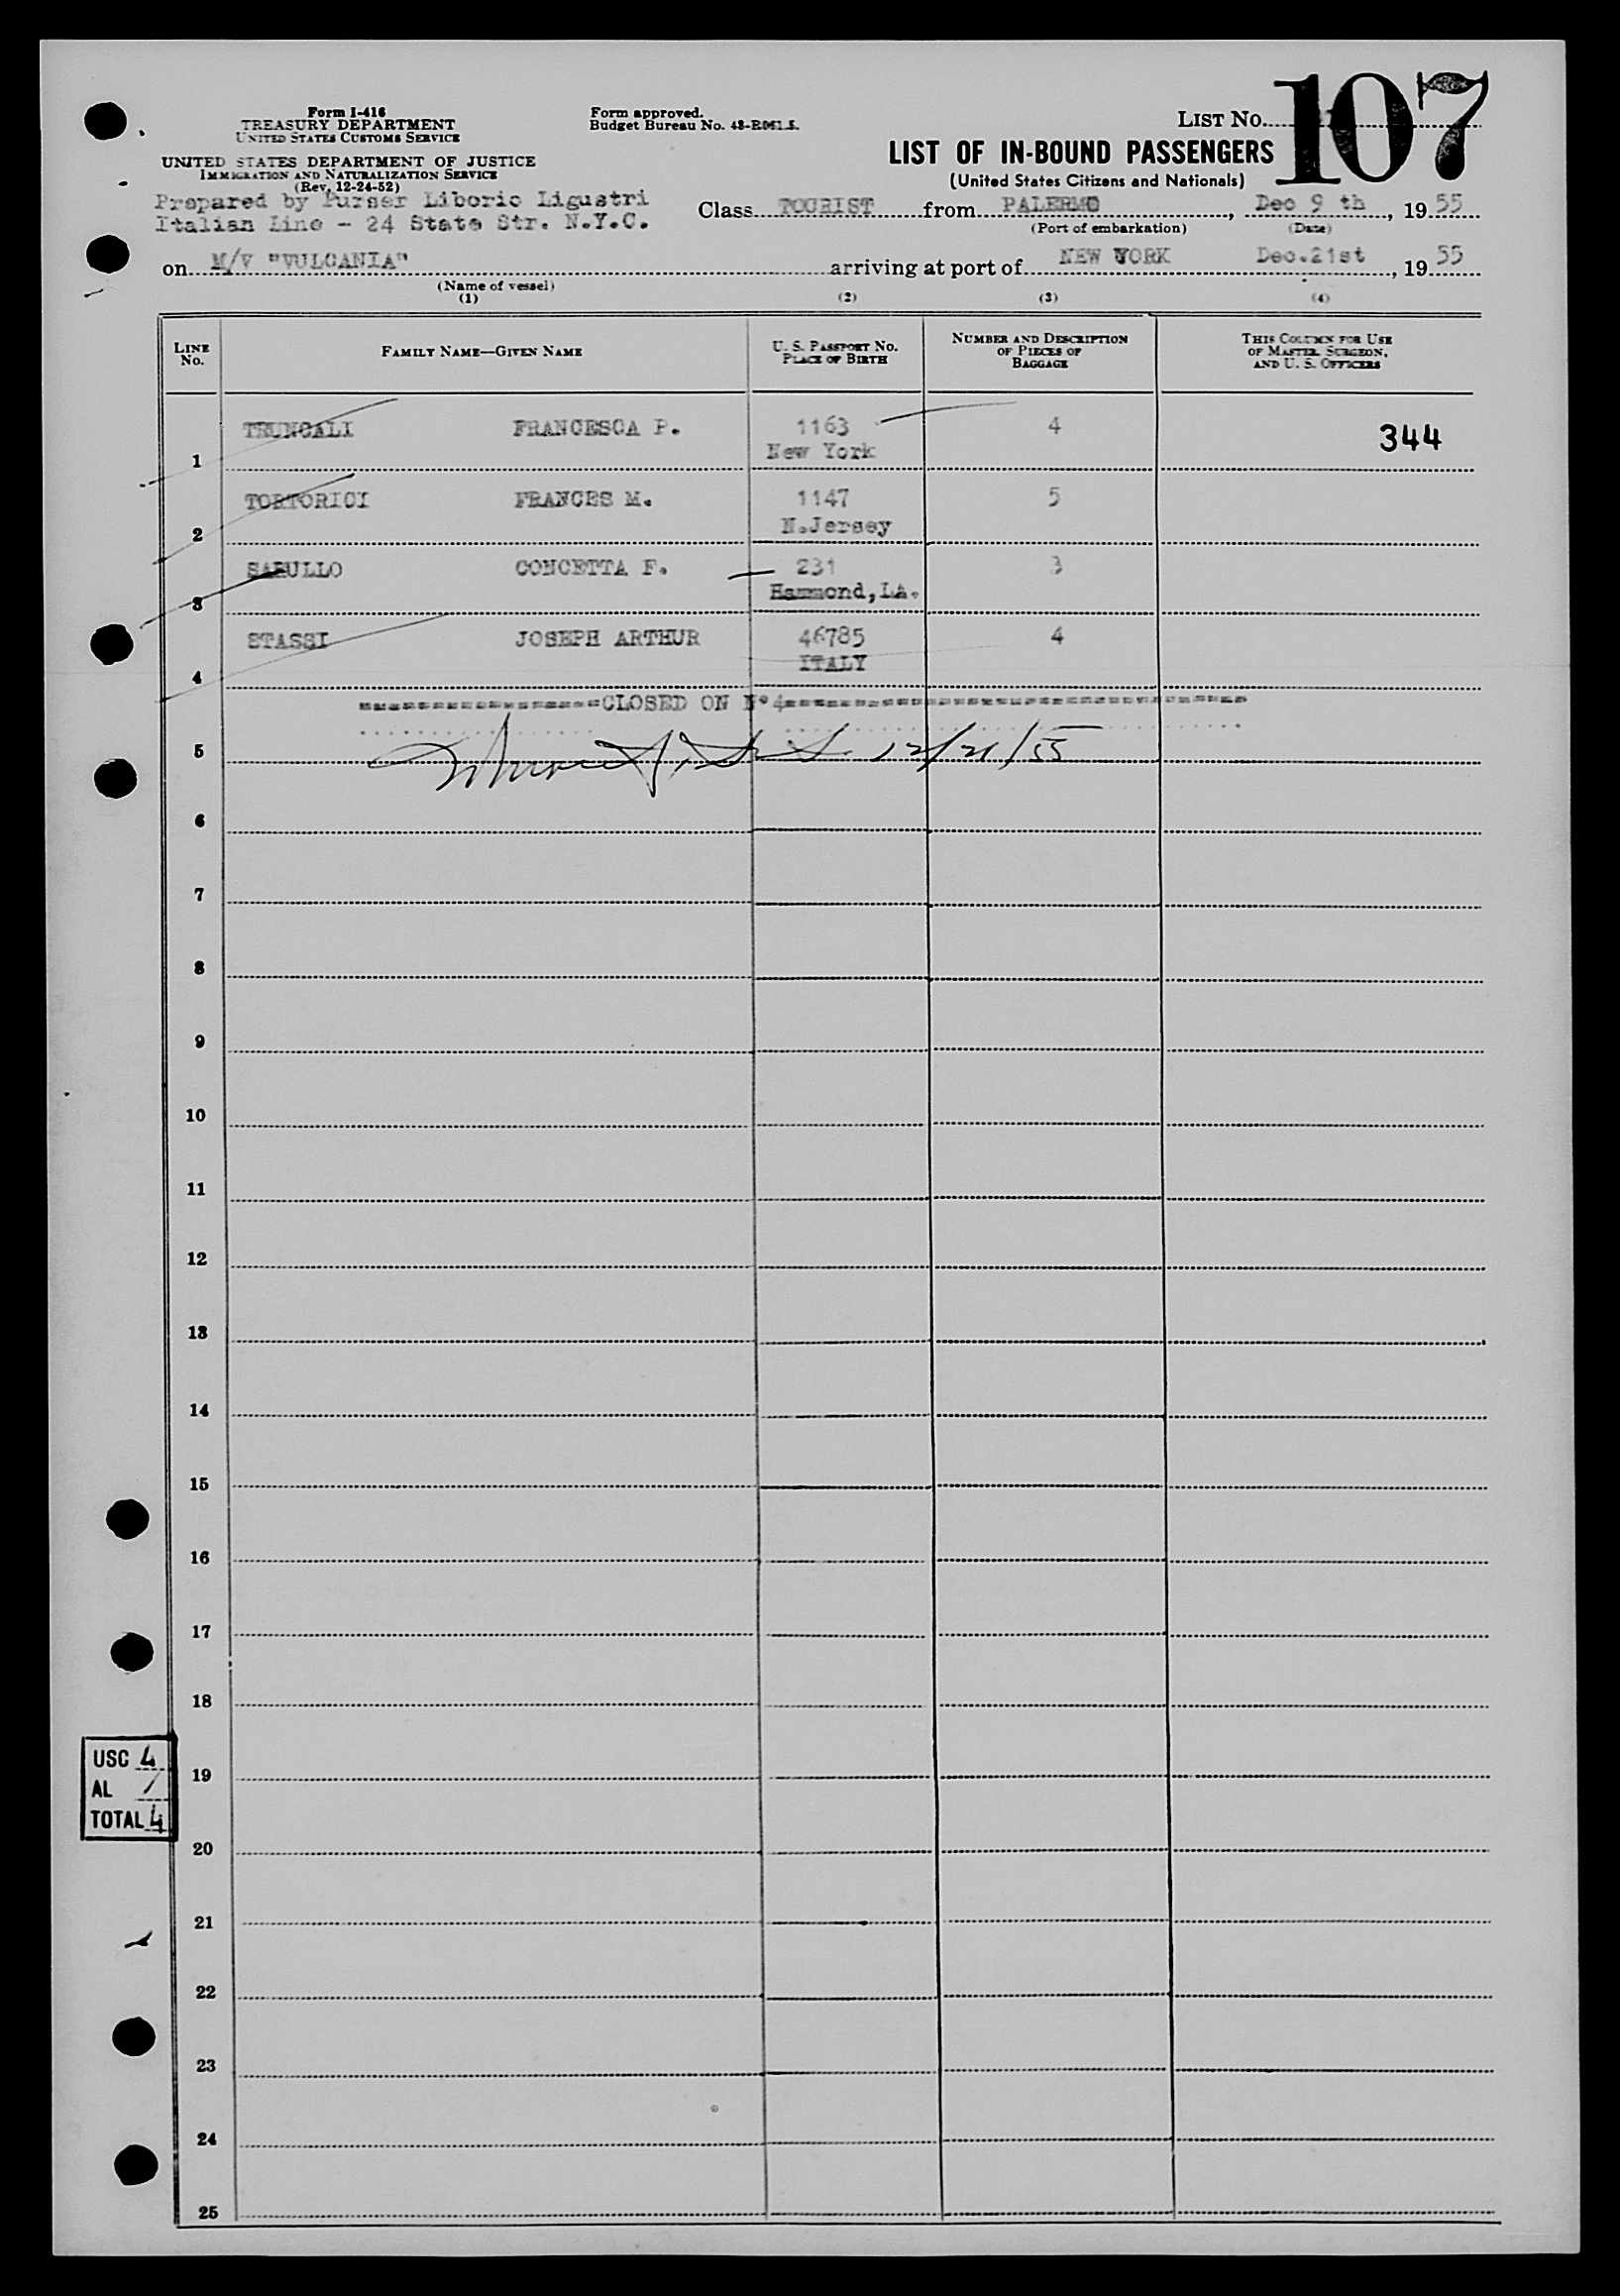 Form I-416
TREASURY DEPARTMENT
UNITED STATES CUSTOMS SERVICE
UNITED STATES DEPARTMENT OF JUSTICE
IMMIGRATION AND NATURALIZATION SERVICE
(Rev. 12-24-52)
Form approved.
Budget Bureau No. 43-R061.5.
LIST NO.
107
LIST OF IN-BOUND PASSENGERS
(United States Citizens and Nationals)
Prepared by Purser Liborio Ligustri
Italian Line - 24 State Str. N.Y.C.
Class TOURIST from PALERMO, Dec 9 th, 19 55
(Port of embarkation) (Date)
on M/V "VULCANIA" arriving at port of NEW YORK Dec.21st, 19 55
(Name of vessel)
(1) (2) (3) (4)
LINE NO. FAMILY NAME—GIVEN NAME U. S. PASSPORT NO. PLACE OF BIRTH NUMBER AND DESCRIPTION OF PIECES OF BAGGAGE THIS COLUMN FOR USE OF MASTER, SURGEON, AND U. S. OFFICERS
TRUNCALI FRANCESCA P. 1163 4 344
1 New York
TORTORICI FRANCES M. 1147 5
2 N.Jersey
SARULLO CONCETTA F. 231 3
3 Hammond, LA.
STASSI JOSEPH ARTHUR 46785 4
4 ITALY
CLOSED ON N°4
5 12/21/55
6
7
8
9
10
11
12
13
14
15
16
17
18
USC 4
19
AL /
TOTAL 4
20
21
22
23
24
25